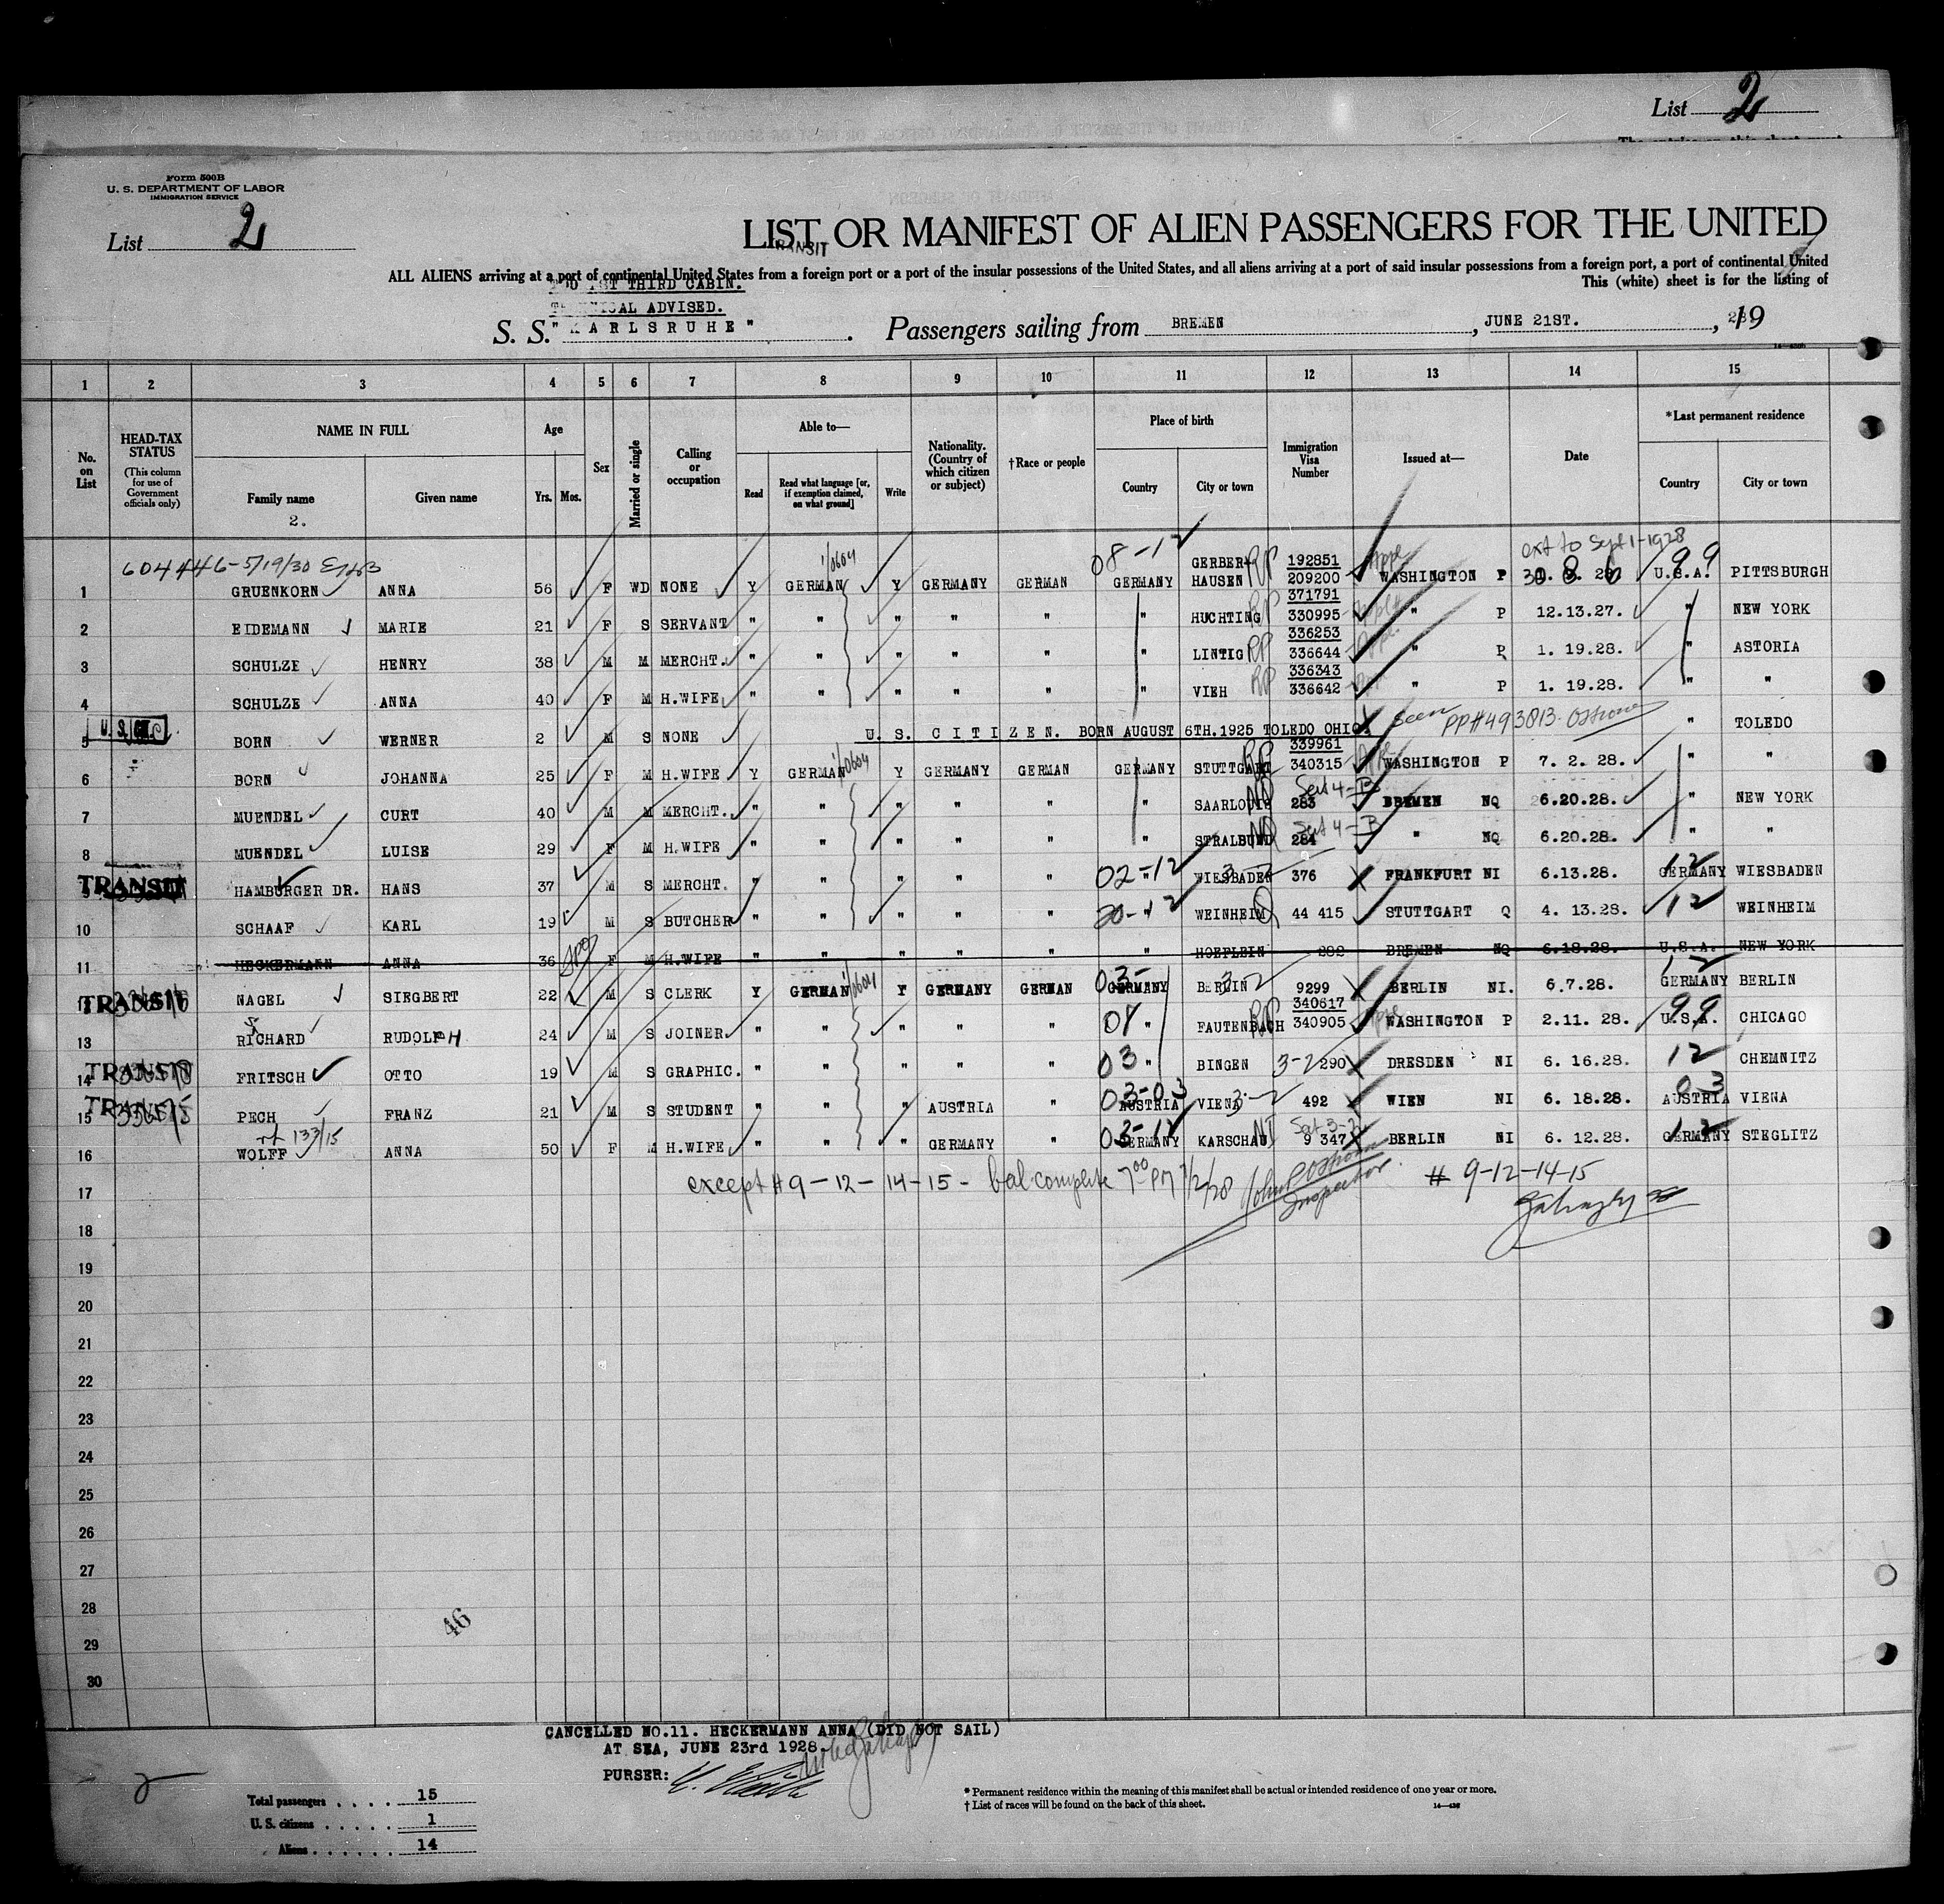 List 2
Form 500B
U. S. DEPARTMENT OF LABOR
IMMIGRATION SERVICE
List 2
LIST OR MANIFEST OF ALIEN PASSENGERS FOR THE UNITED
TRANSIT
ALL ALIENS arriving at a port of continental United States from a foreign port or a port of the insular possessions of the United States, and all aliens arriving at a port of said insular possessions from a foreign port, a port of continental United
This (white) sheet is for the listing of
THIRD CABIN.
ADVISED.
S. S. "KARLSRUHE". Passengers sailing from BREMEN, JUNE 21ST., 19 28
1 2 3 4 5 6 7 8 9 10 11 12 13 14 15
No. on List
HEAD-TAX STATUS (This column for use of Government officials only)
NAME IN FULL Family name Given name
2.
Age Yrs. Mos.
Sex
Married or single
Calling or occupation
Able to— Read Read what language [or, if exemption claimed, on what ground] Write
Nationality. (Country of which citizen or subject)
†Race or people
Place of birth Country City or town
Immigration Visa Number
Issued at—
Date
*Last permanent residence Country City or town
604446-5/19/30 08-12 ext to Sept 1-1928
1 GRUENKORN ANNA 56 F WD NONE Y GERMAN Y GERMANY GERMAN GERMANY GERBERHAUSEN RP 192851 209200 WASHINGTON P U.S.A. 99 PITTSBURGH
2 EIDEMANN MARIE 21 F S SERVANT " " " " " " HUCHTING RP 371791 330995 " P 12.13.27. " NEW YORK
3 SCHULZE HENRY 38 M M MERCHT. " " " " " " LINTIG RP 336253 336644 " P 1. 19.28. " ASTORIA
4 SCHULZE ANNA 40 F M H.WIFE " " " " " " VIEH RP 336343 336642 " P 1. 19.28. " "
5 U.S.CIT. BORN WERNER 2 M S NONE U. S. CITIZEN. BORN AUGUST 6TH.1925 TOLEDO OHIO. seen PP#493813 " TOLEDO
6 BORN JOHANNA 25 F M H.WIFE Y GERMAN Y GERMANY GERMAN GERMANY STUTTGART RP 339961 340315 WASHINGTON P 7. 2. 28. " "
7 MUENDEL CURT 40 M M MERCHT. " " " " " " SAARLOUIS NQ Sect 4-B 283 BREMEN NQ 6.20.28. " NEW YORK
8 MUENDEL LUISE 29 F M H.WIFE " " " " " " STRALSUND NQ Sect 4-B 284 " NQ 6.20.28. " "
9 TRANSIT HAMBURGER DR. HANS 37 M S MERCHT. " " " " " 02-12 " WIESBADEN 3-2 376 FRANKFURT NI 6.13.28. GERMANY 12 WIESBADEN
10 SCHAAF KARL 19 M S BUTCHER " " " " " 20-12 " WEINHEIM Q 44 415 STUTTGART Q 4. 13.28. 12 WEINHEIM
11 HECKERMANN ANNA 36 F M H.WIFE " " " " " " HOEPLEIN 282 BREMEN NQ 6.18.28. U.S.A. NEW YORK
TRANSIT NAGEL SIEGBERT 22 M S CLERK Y GERMAN Y GERMANY GERMAN 03- GERMANY BERLIN 3-2 9299 BERLIN NI. 6.7.28. GERMANY 12 BERLIN
13 RICHARD RUDOLPH 24 M S JOINER " " " " " " FAUTENBACH RP 340617 340905 WASHINGTON P 2.11. 28. U.S.A. 99 CHICAGO
14 TRANSIT FRITSCH OTTO 19 M S GRAPHIC. " " " " " 03 " BINGEN 3-2 290 DRESDEN NI 6. 16.28. 12 CHEMNITZ
15 TRANSIT PECH FRANZ 21 M S STUDENT " " " AUSTRIA " 03-03 AUSTRIA VIENA 3-2 492 WIEN NI 6. 18.28. AUSTRIA 03 VIENA
16 WOLFF ANNA 50 F M H.WIFE " " " GERMANY " 03-12 GERMANY KARSCHAU NI Sect 3-2 9 347 BERLIN NI 6. 12.28. GERMANY 12 STEGLITZ
17 except # 9-12-14-15- bal. complete 7:00 PM 7/2/28 Inspector # 9-12-14-15
18
19
20
21
22
23
24
25
26
27
28
29
30
46
CANCELLED NO.11. HECKERMANN ANNA (DID NOT SAIL)
AT SEA, JUNE 23rd 1928.
PURSER:
Total passengers . . . . 15
U. S. citizens . . . . . 1
Aliens . . . . . . 14
* Permanent residence within the meaning of this manifest shall be actual or intended residence of one year or more.
† List of races will be found on the back of this sheet.